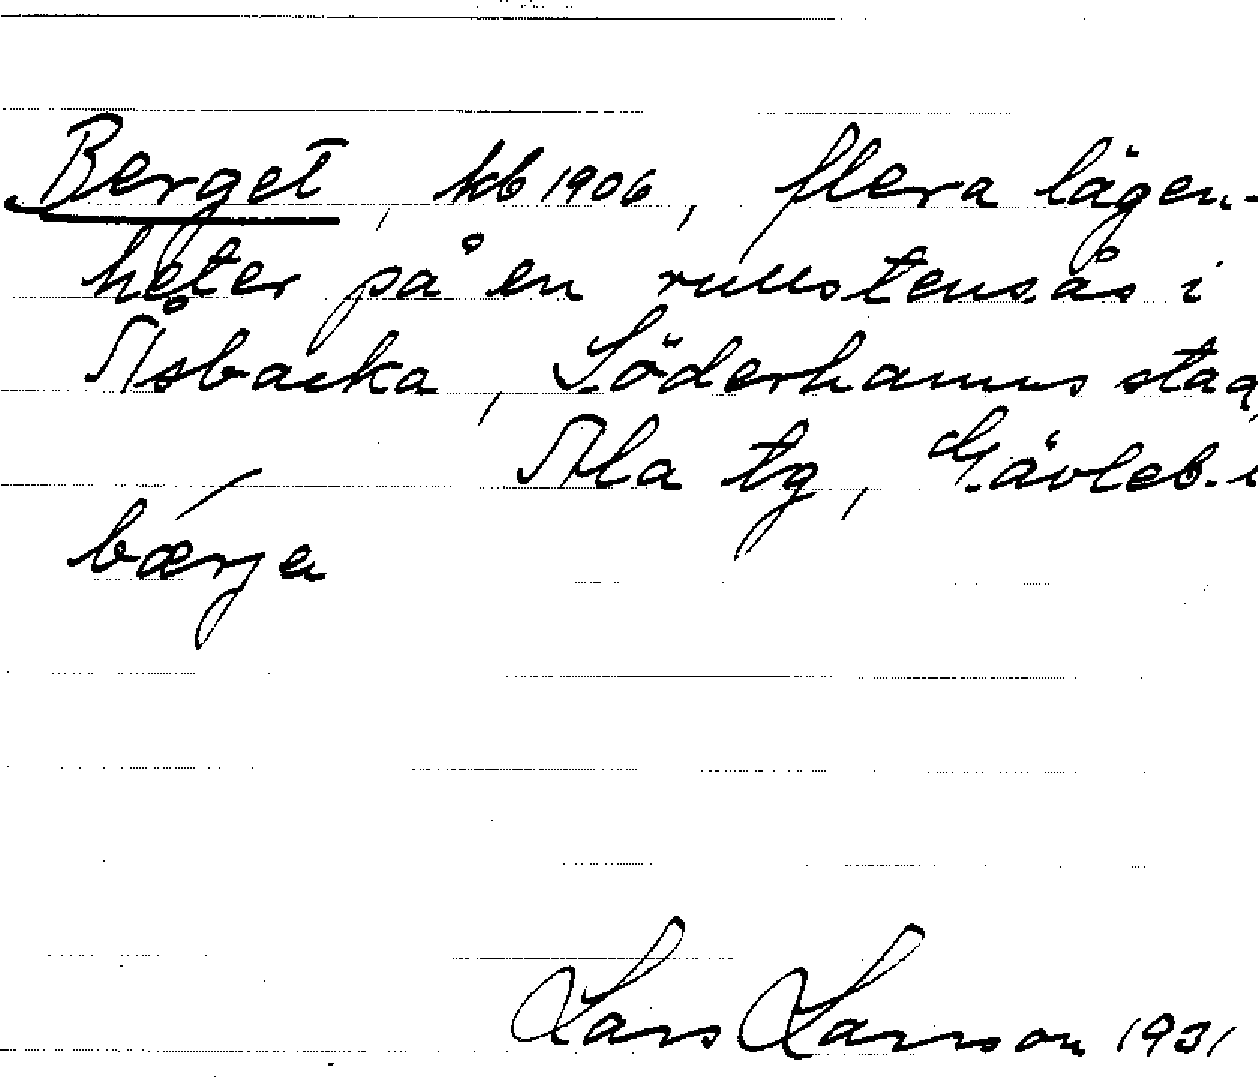 Berget, kb 1906, flera lägen-
heter på en rullstensås i
Åsbacka, Söderhamns stad
Ala tg, Gävleb.
bærja
Lars Larsson 1931